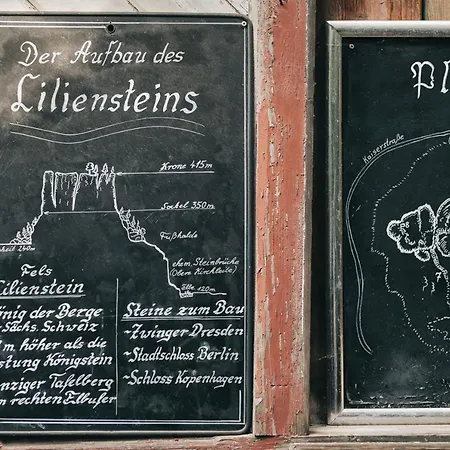 Der Aufbau des
Liliensteins
Krone 415m
Sockel 350m
Fußhalde
ehem. Steinbrüche
(Obere Kirchleite)
Elbe 120m
Fels
Lilienstein
Steine zum Bau
-Zwinger Dresden
-Stadtschloss Berlin
-Schloss Kopenhagen
nig der Berge
Sächs. Schweiz
m höher als die
stung Königstein
nziger Tafelberg
m rechten Elbufer
Pl
Kaiserstraße